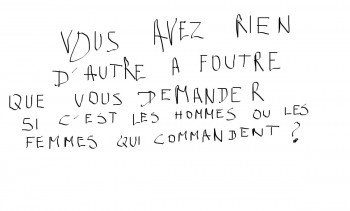 VOUS AVEZ RIEN
D'AUTRE A FOUTRE
QUE VOUS DEMANDER
SI C'EST LES HOMMES OU LES
FEMMES QUI COMMANDENT ?